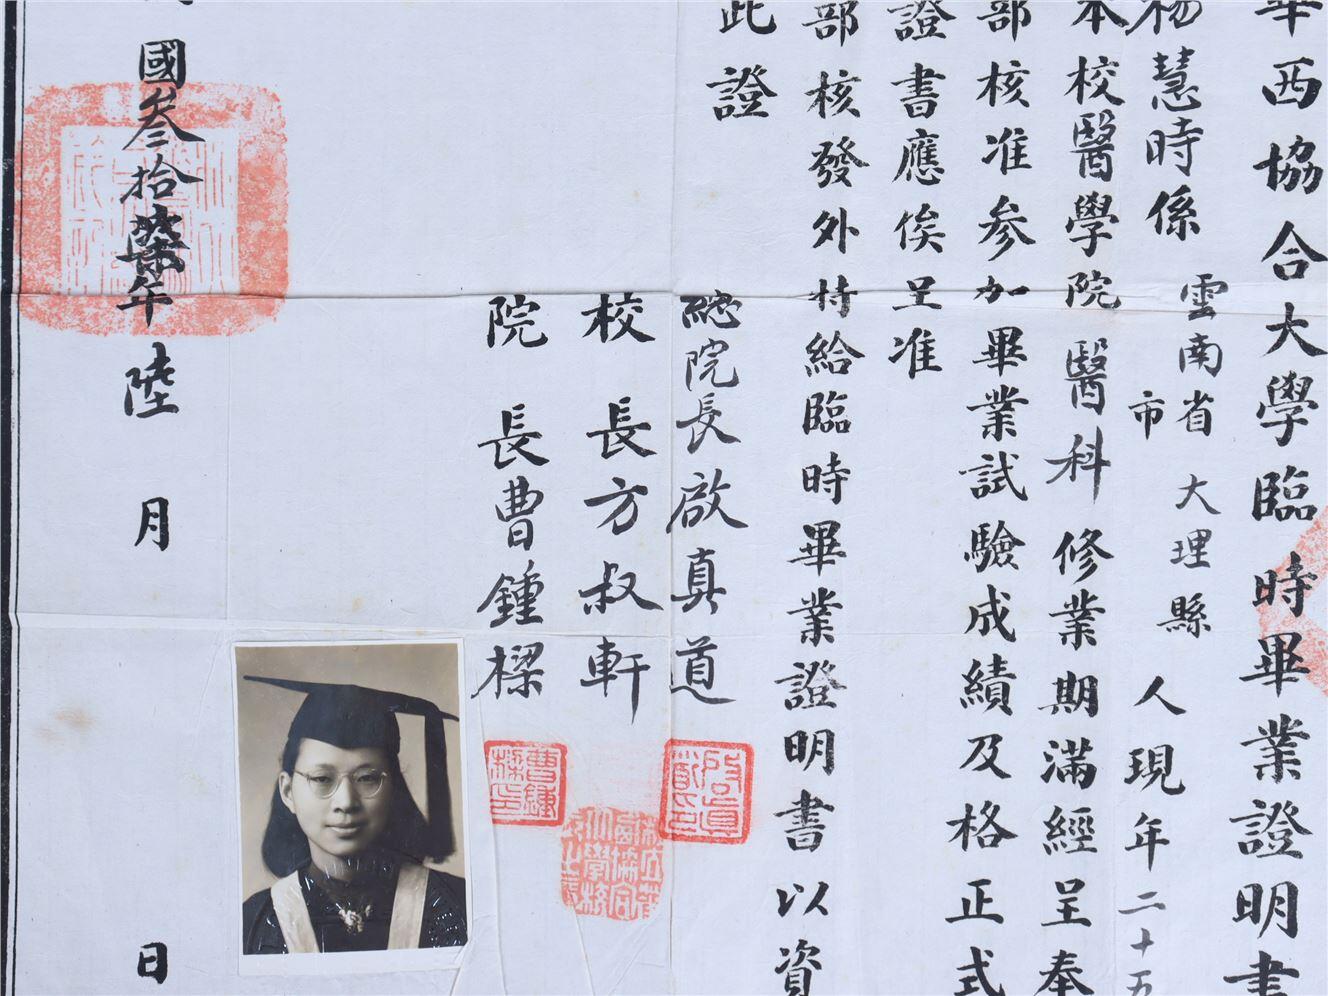 華西協合大學臨時畢業證明書
楊慧時係雲南省大理縣人現年二十五
市
本校醫學院醫科修業期滿經呈奉
部核准参加畢業試驗成績及格正式
證書應俟呈准
部核發外特給臨時畢業證明書以資
此證
總院長啟真道
校長方叔軒
院長曹鍾樑
國叁拾柒年陸月日
曹鍾樑印